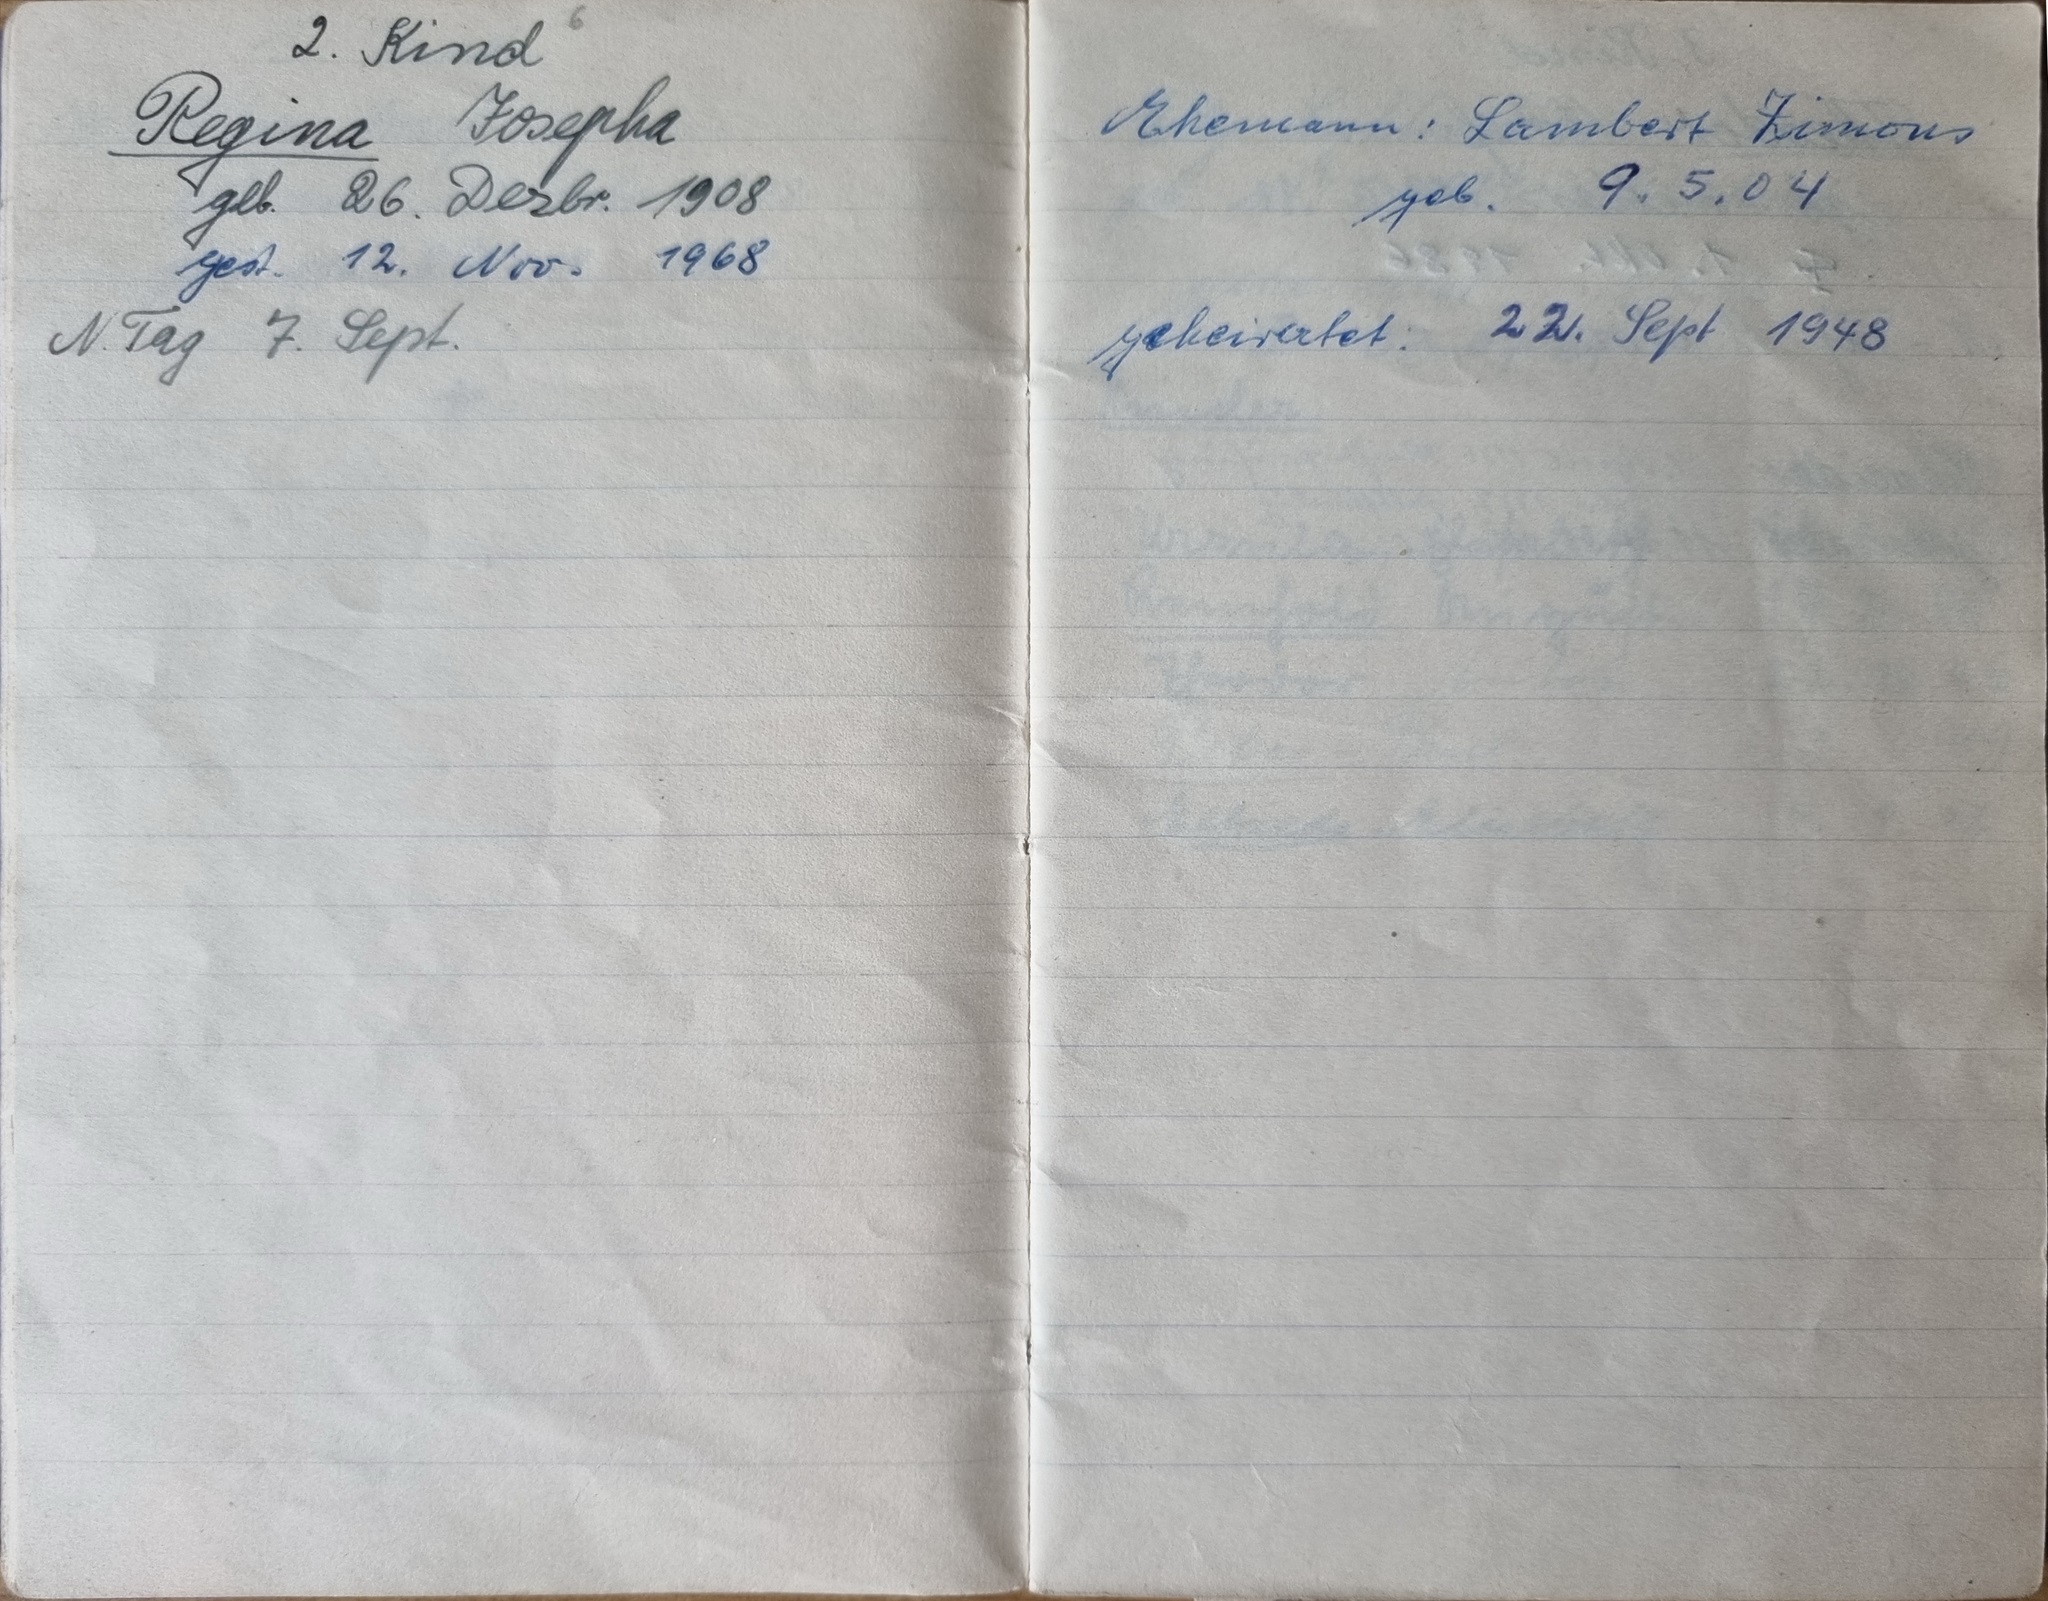 2. Kind 6
Regina Josepha
geb. 26. Dezbr. 1908
gest. 12. Nov. 1968
N. Tag 7. Sept.
Ehemann: Lambert Zimons
geb. 9.5.04
geheiratet: 22. Sept 1948